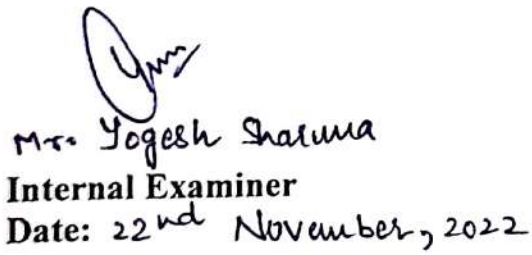 Mr. Yogesh Sharma
Internal Examiner
Date: 22nd November, 2022